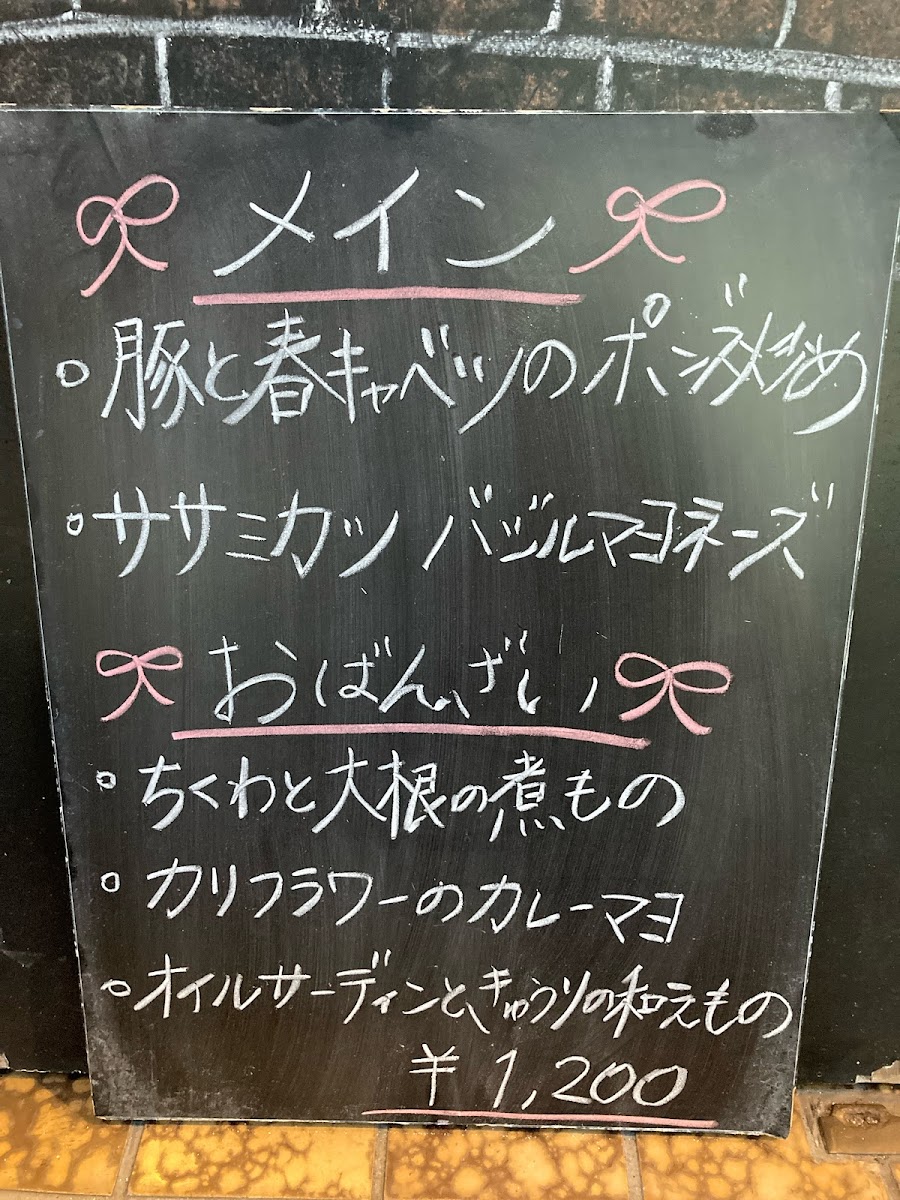 メイン
豚と春キャベツのポンズ炒め
ササミカツ バジルマヨネーズ
おばんざい
ちくわと大根の煮もの
カリフラワーのカレーマヨ
オイルサーディンときゅうりの和えもの
¥1,200